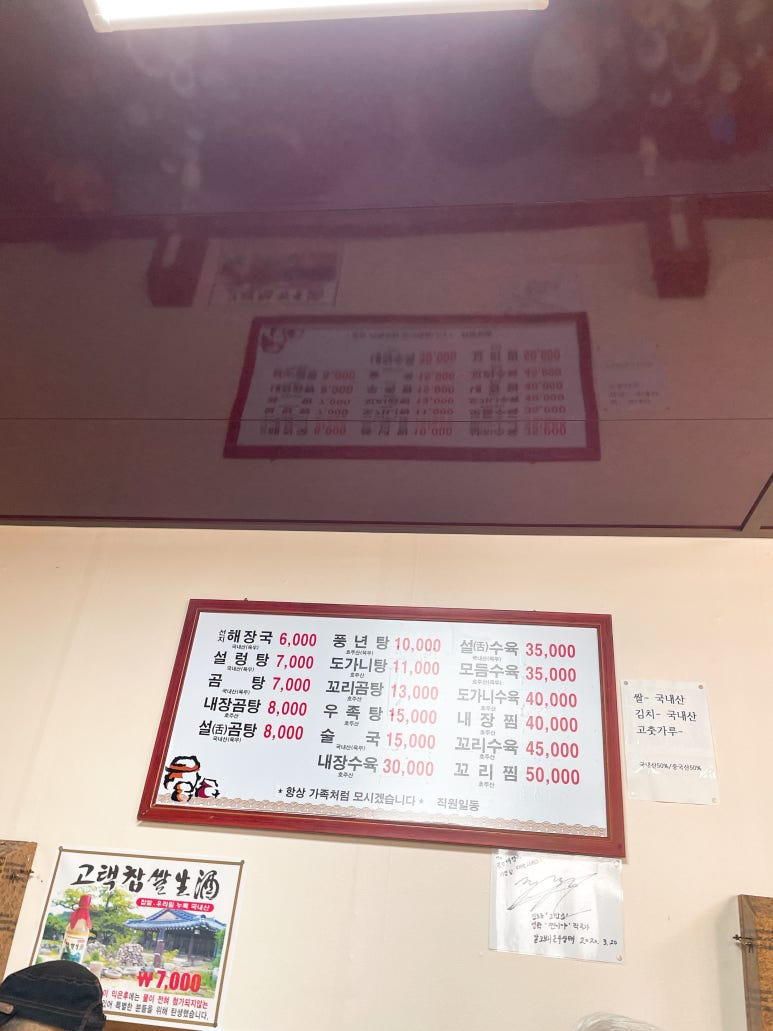 선지 해장국 6,000
국내산(육우)
설렁탕 7,000
국내산(육우)
곰 탕 7,000
국내산(육우)
내장곰탕 8,000
호주산
설(舌)곰탕 8,000
국내산(육우)
풍년탕 10,000
호주산(육우)
도가니탕 11,000
호주산
꼬리곰탕 13,000
호주산
우족탕 15,000
호주산
술 국 15,000
국내산(육우)
내장수육 30,000
호주산
설(舌)수육 35,000
국내산(육우)
모듬수육 35,000
호주산(육우)
도가니수육 40,000
호주산
내장찜 40,000
호주산
꼬리수육 45,000
호주산
꼬리찜 50,000
호주산
* 항상 가족처럼 모시겠습니다 * 직원일동
쌀- 국내산
김치- 국내산
고춧가루-
국내산50%/중국산50%
고택찹쌀生酒
찹쌀·우리밀 누룩 국내산
₩7,000
익은후에는 물이 전혀 첨가되지않는
특별한 분들을 위해 탄생했습니다.
2020. 3. 20